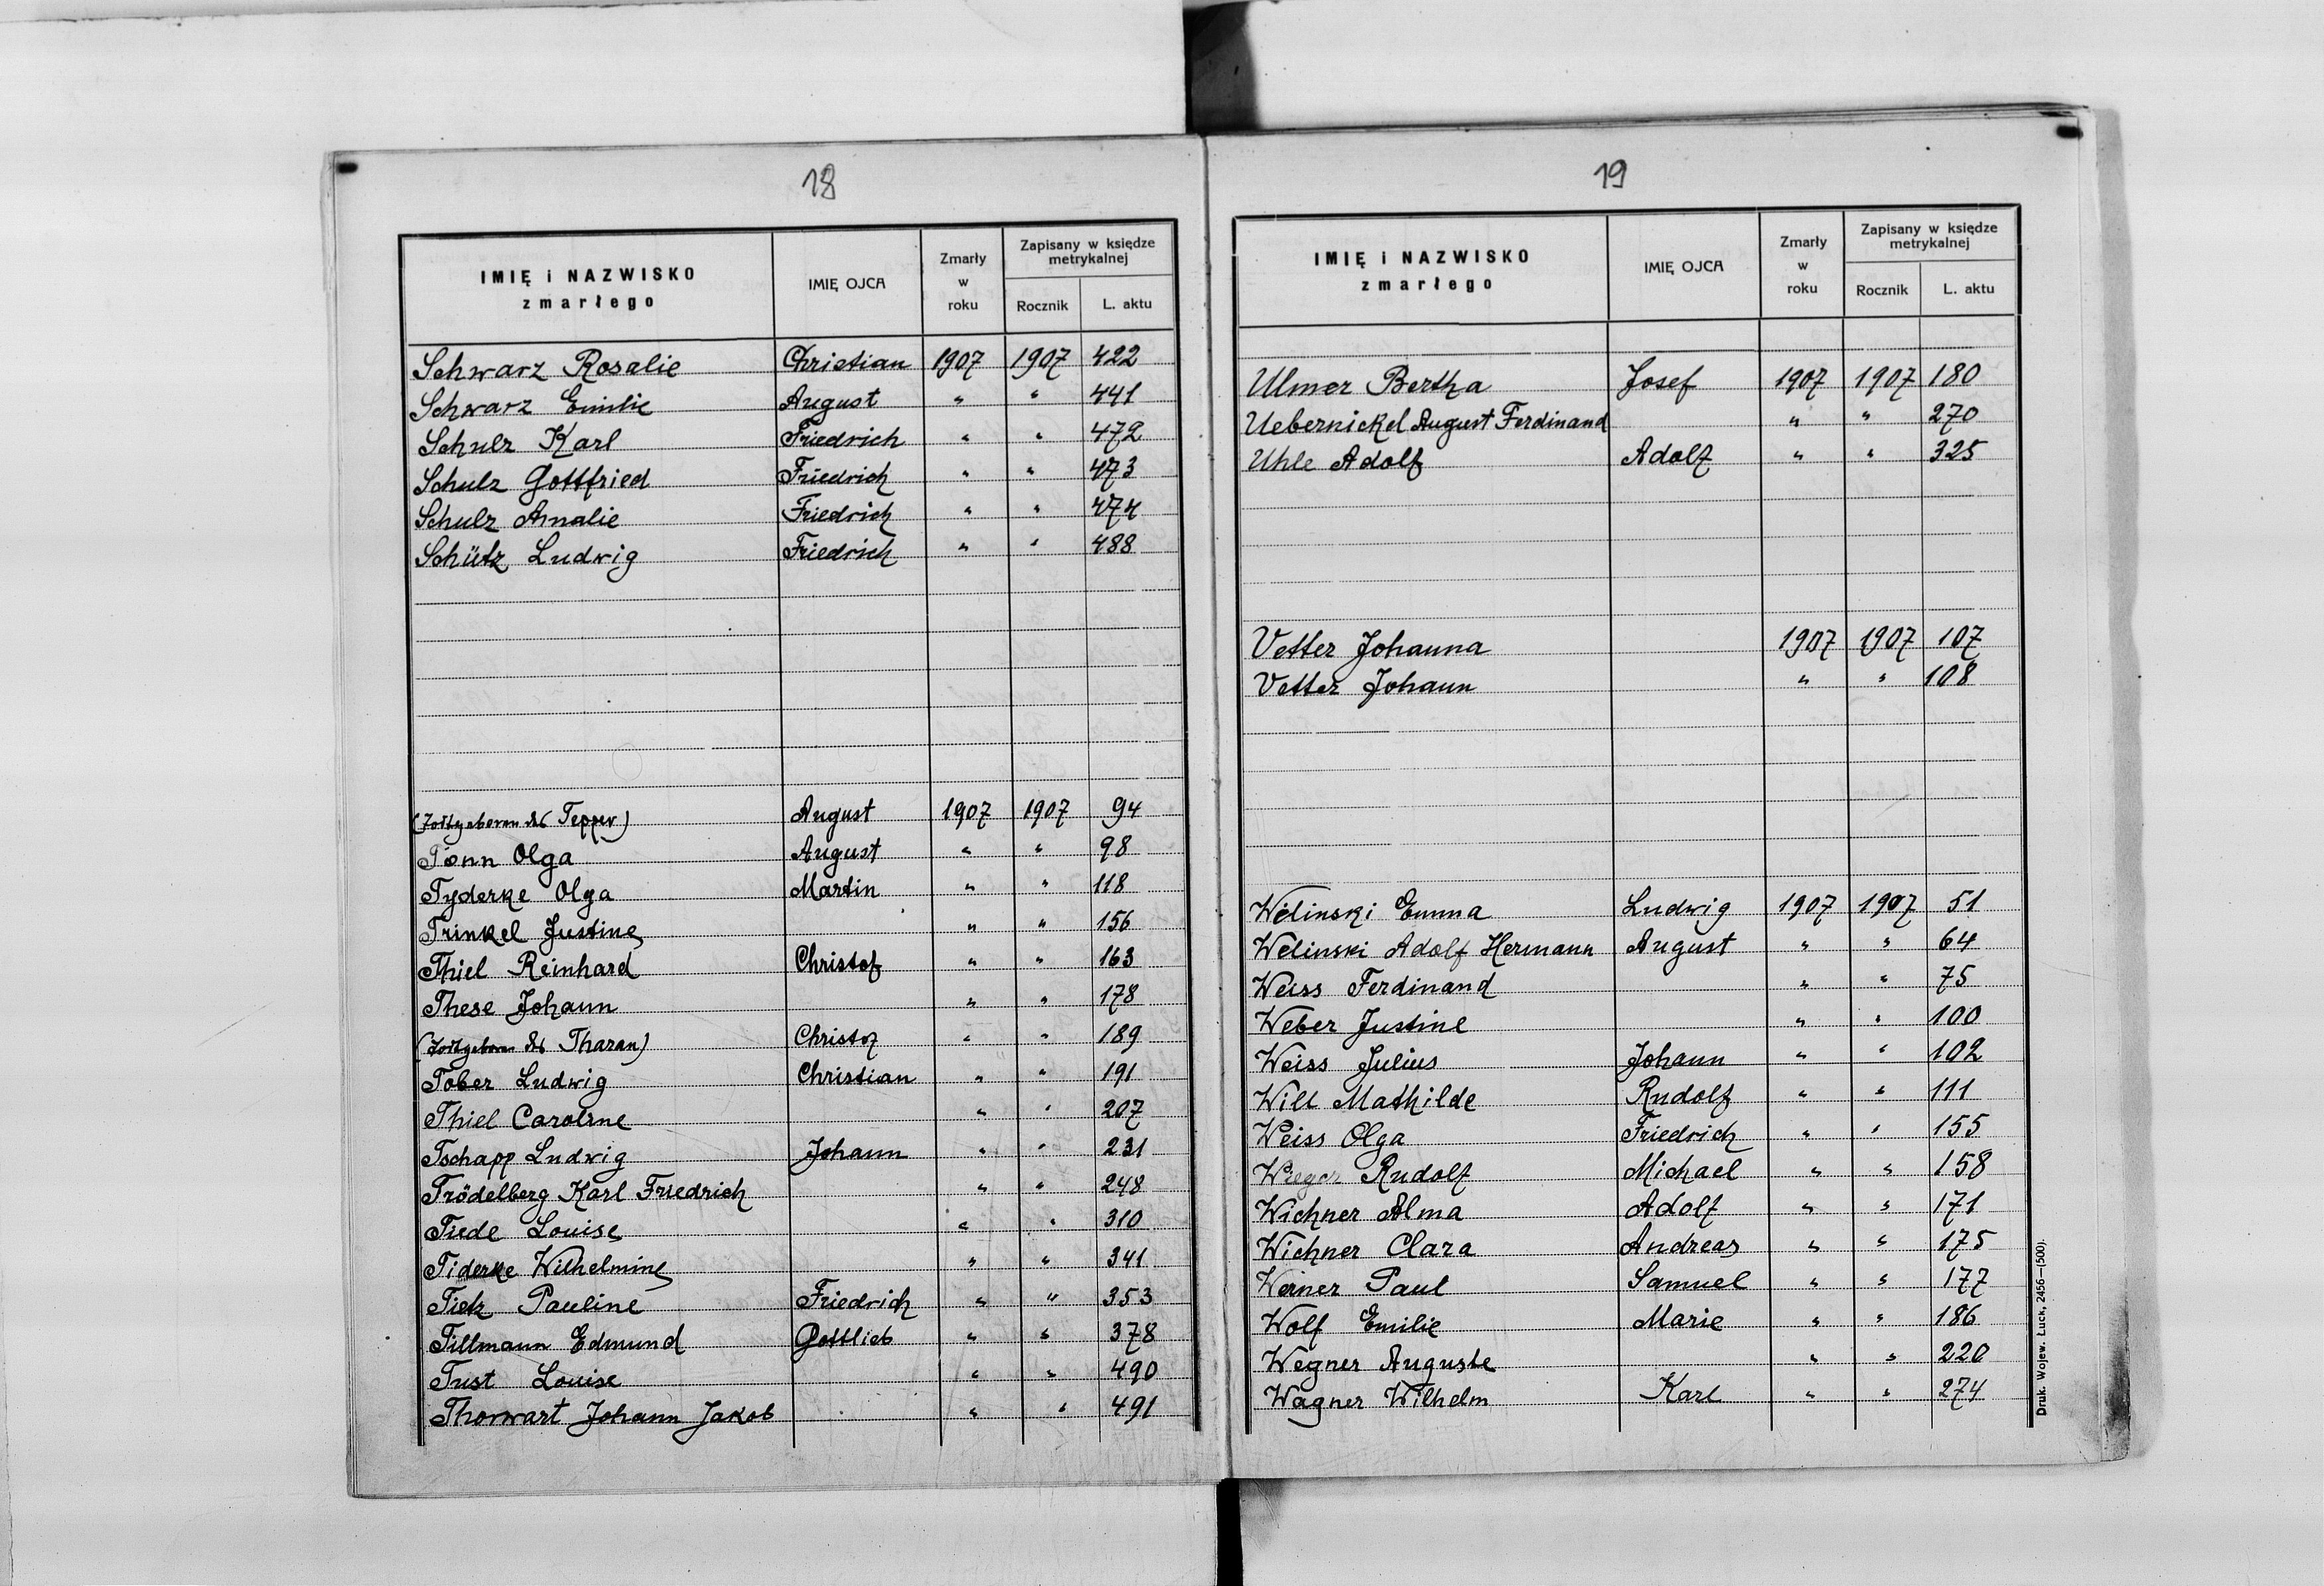 18
IMIĘ i NAZWISKO zmarłego | IMIĘ OJCA | Zmarły w roku | Zapisany w księdze metrykalnej
Rocznik | L. aktu
Schwarz Rosalie | Christian | 1907 | 1907 | 422
Schwarz Emilie | August | " | " | 441
Schulz Karl | Friedrich | " | " | 472
Schulz Gottfried | Friedrich | " | " | 473
Schulz Amalie | Friedrich | " | " | 474
Schütz Ludwig | Friedrich | " | " | 488
(Todtgeboren des Tepper) | August | 1907 | 1907 | 94
Tonn Olga | August | " | " | 98
Tyderke Olga | Martin | " | " | 118
Trinkel Justine | | " | " | 156
Thiel Reinhard | Christof | " | " | 163
These Johann | | " | " | 178
(Todtgeboren des Tharan) | Christof | " | " | 189
Tober Ludwig | Christian | " | " | 191
Thiel Caroline | | " | " | 207
Tschapp Ludwig | Johann | " | " | 231
Trödelberg Karl Friedrich | | " | " | 248
Tiede Louise | | " | " | 310
Tiderke Wilhelmine | | " | " | 341
Tietz Pauline | Friedrich | " | " | 353
Tillmann Edmund | Gottlieb | " | " | 378
Tust Louise | | " | " | 490
Thorwart Johann Jakob | | " | " | 491
19
IMIĘ i NAZWISKO zmarłego | IMIĘ OJCA | Zmarły w roku | Zapisany w księdze metrykalnej
Rocznik | L. aktu
Ulmer Bertha | Josef | 1907 | 1907 | 180
Uebernickel August Ferdinand | | " | " | 270
Uhle Adolf | Adolf | " | " | 325
Vetter Johanna | | 1907 | 1907 | 107
Vetter Johann | | " | " | 108
Welinski Emma | Ludwig | 1907 | 1907 | 51
Welinski Adolf Hermann | August | " | " | 64
Weiss Ferdinand | | " | " | 75
Weber Justine | | " | " | 100
Weiss Julius | Johann | " | " | 102
Will Mathilde | Rudolf | " | " | 111
Weiss Olga | Friedrich | " | " | 155
Rudolf | Michael | " | " | 158
Wichner Alma | Adolf | " | " | 171
Wichner Clara | Andreas | " | " | 175
Werner Paul | Samuel | " | " | 177
Wolf Emilie | Marie | " | " | 186
Wegner Auguste | | " | " | 220
Wagner Wilhelm | Karl | " | " | 274
Druk. Wojew. Łuck, 2456—(500).